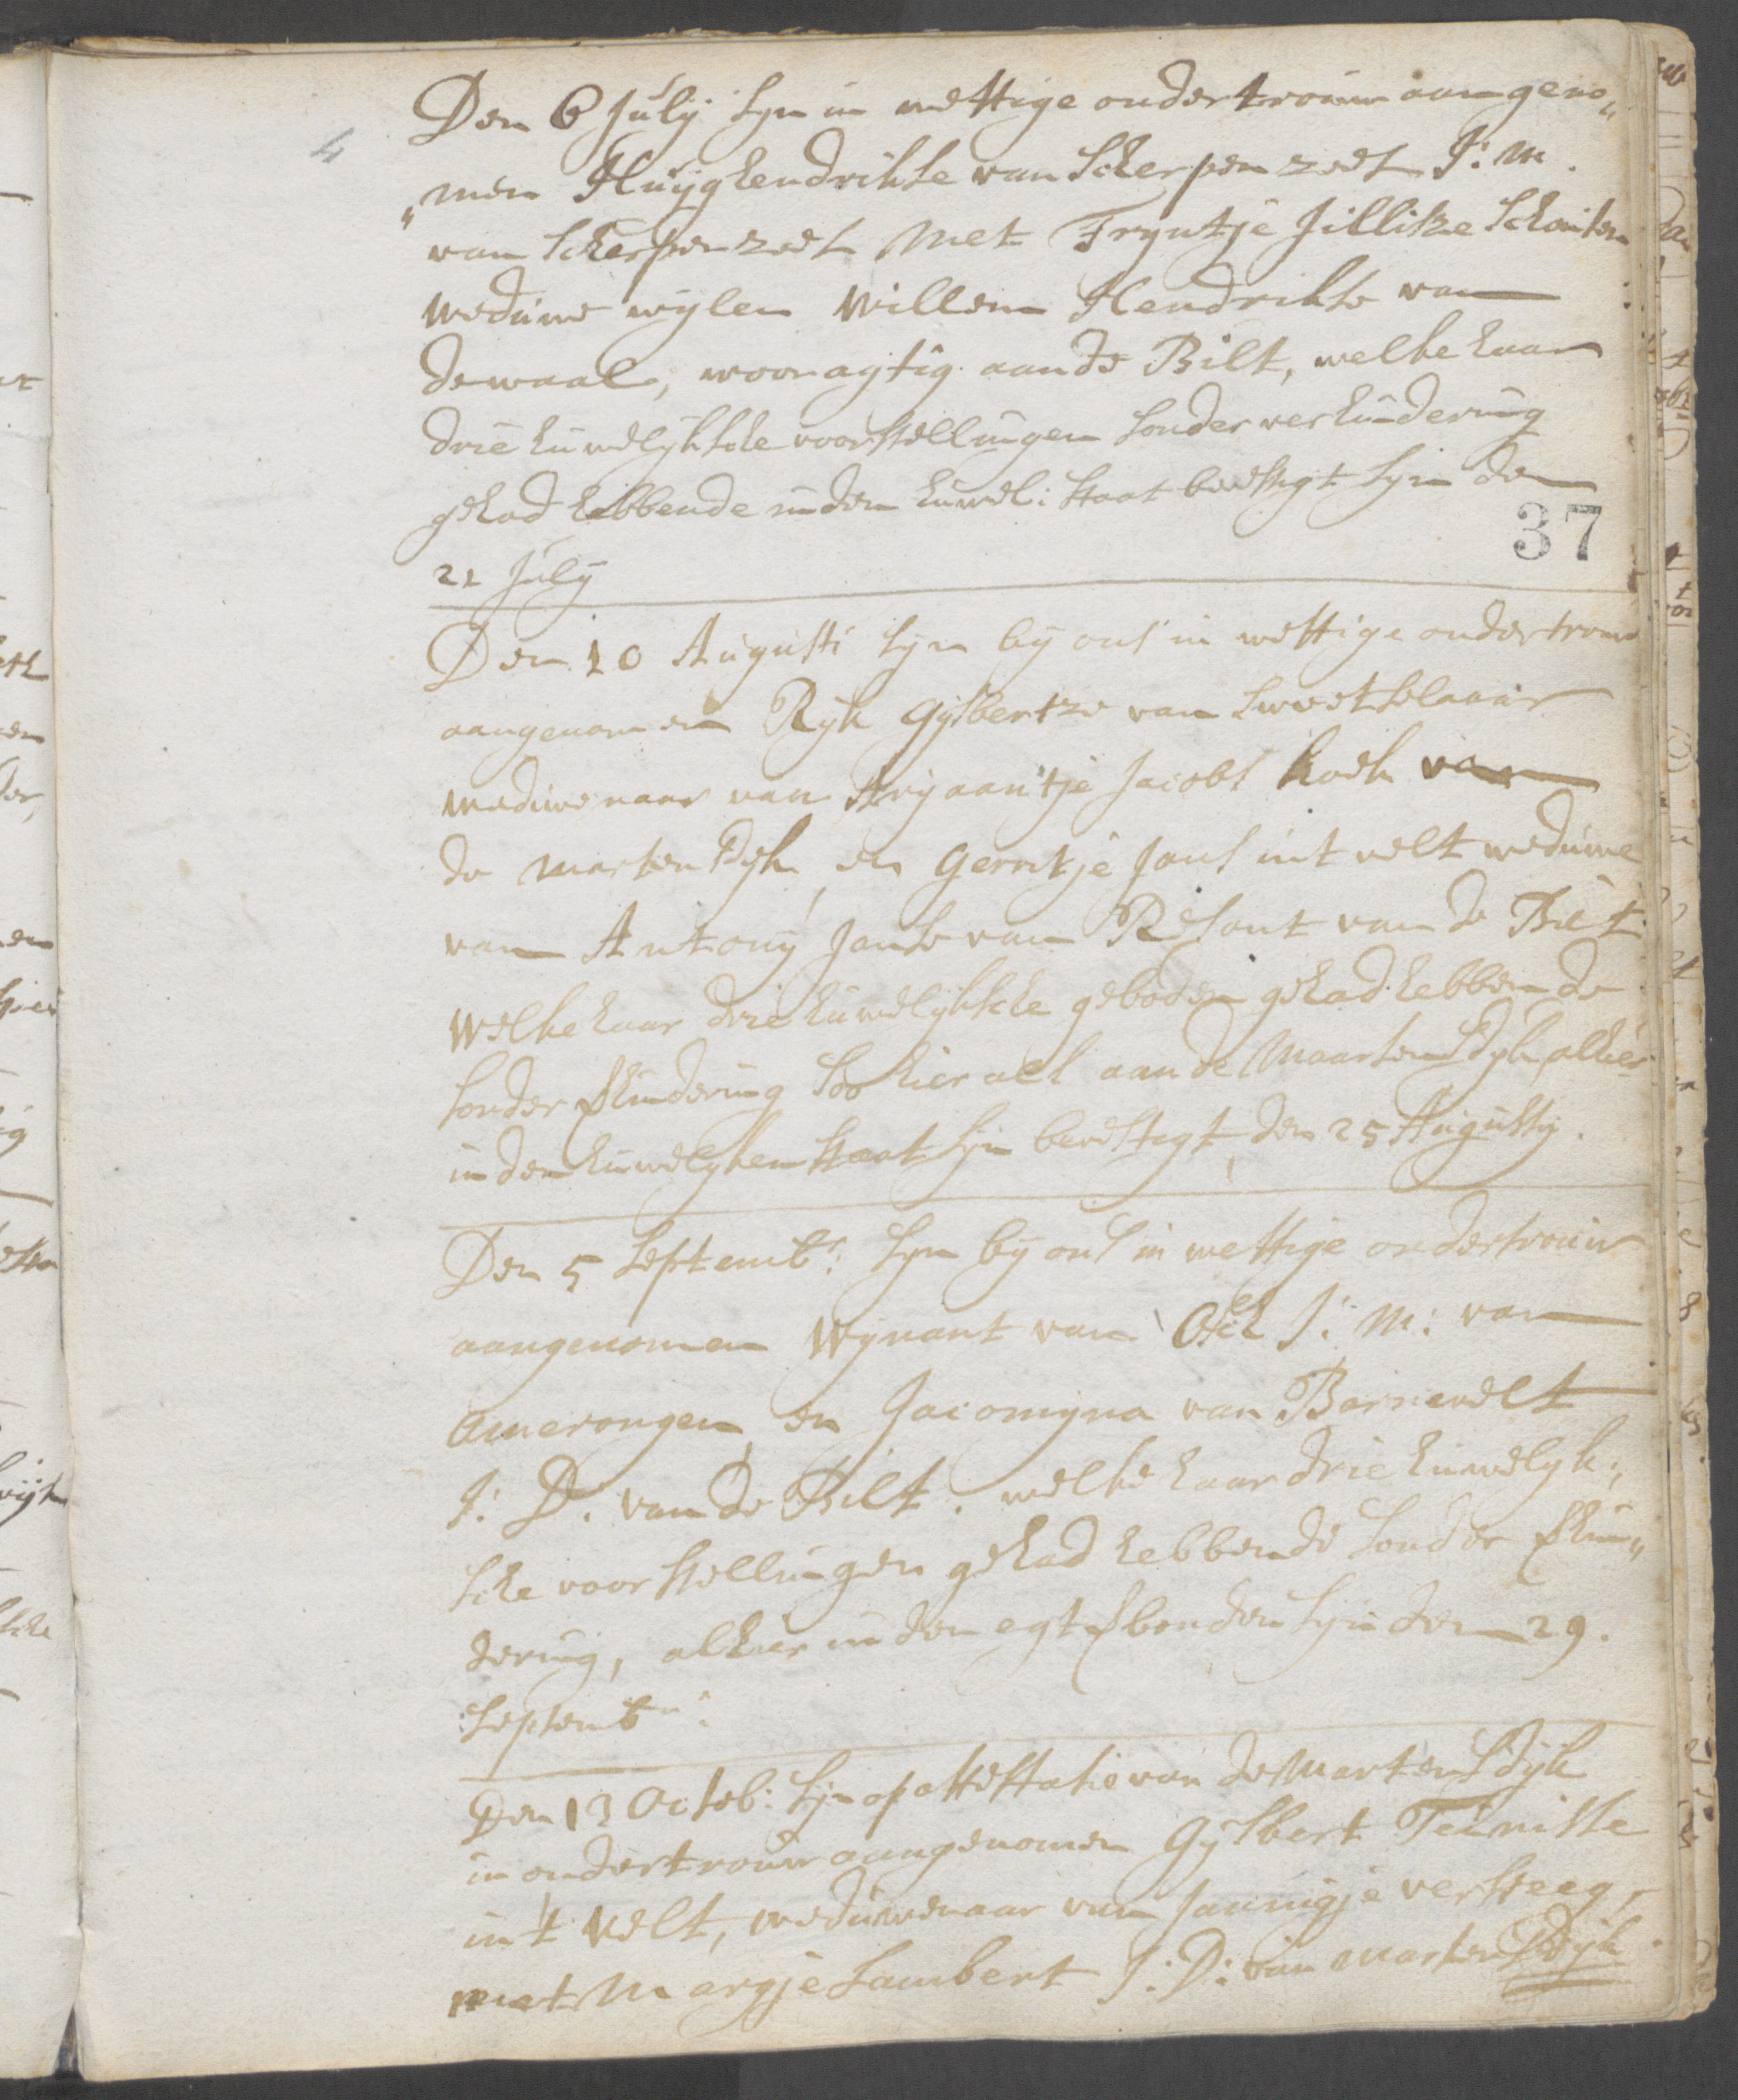 Den 6 July syn in wettige ondertrouw aangeno„
4
„men Huyghendrikse van Scherpenzeel J: M.
van Scherpenzeel met Tryntje Jillisze Schouten
weduwe wylen Willem Hendrikse van
de waal, woonagtig aan de Bilt, welke haar
drie huwelijksche voorstellingen sonder verhindering
gehad hebbende in den huwel: staat bevestigt syn den
37
21 July
Den 10 Augusti syn by ons in wettige ondertrouw
aangenomen Ryk Gysbertze van Swetselaaar
weduwenaar van Aryaantje Jacobs Koek van
de Martensdyk, en Gerritje Jans int velt weduwe
van Antony Janse van Resont van de Bilt
welke haar drie huwelyksche geboden gehad hebbende
sonder Shindering soo hier als aan de Maartensdyk, alhier
in den huwelyken staat syn bevestigt, den 25 Augusty.
Den 5 Septembr: syn by ons in wettige ondertrouw
aangenomen Wynant van Osch J: M: van
Amerongen en Jacomyna van Barnevelt
J: D. van de Bilt. welke haar drie huwelyk„
sche voorstellingen gehad hebbende sonder Shin„
dering, alhier in den egt Sbonden syn den 29.
Septembr:
Den 13 Octob: syn op attestatie van de Martensdyk
in ondertrouw aangenomen Gysbert Teunisse
in 't velt, weduwenaar van Jannigje versteeg,
met Margje Lambert J: D: van Martensdyk